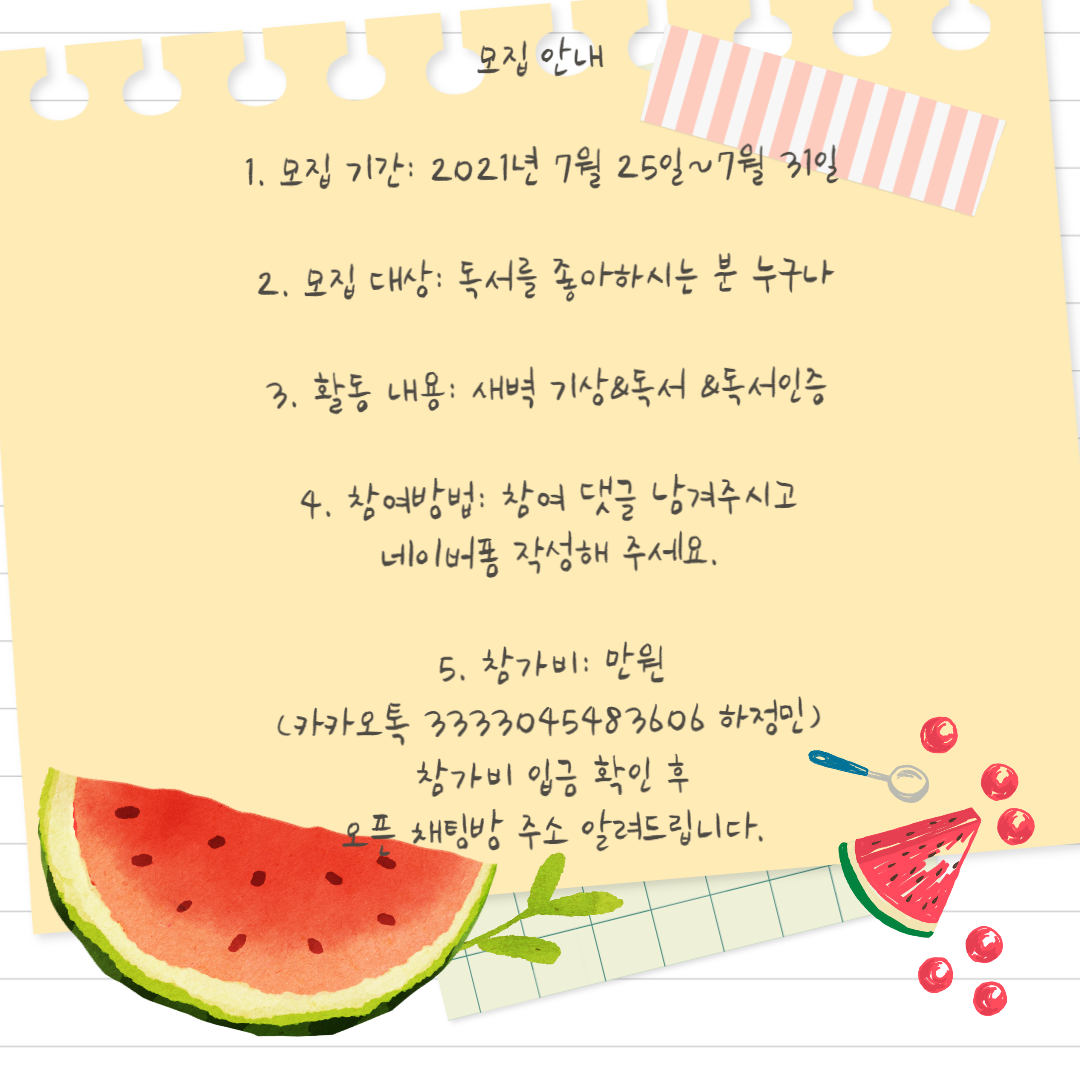 모집 안내
1. 모집 기간: 2021년 7월 25일~7월 31일
2. 모집 대상: 독서를 좋아하시는 분 누구나
3. 활동 내용: 새벽 기상&독서 &독서인증
4. 참여방법: 참여 댓글 남겨주시고
네이버폼 작성해 주세요.
5. 참가비: 만원
(카카오톡 3333045483606 하정민)
참가비 입금 확인 후
오픈 채팅방 주소 알려드립니다.